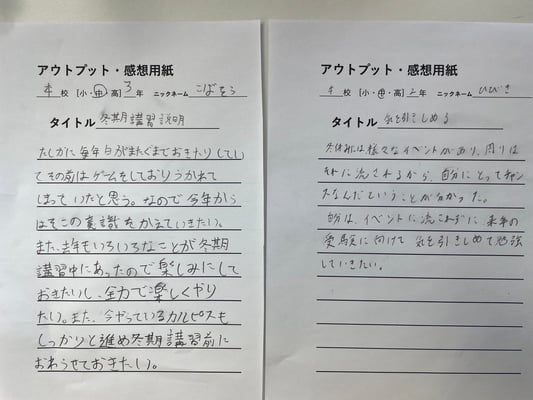 アウトプット・感想用紙
本校 [小・中・高] 3年 ニックネーム こばをう
タイトル 冬期講習説明
たしかに毎年日がまたぐまでおきたりしてい
てその前はゲームをしておりうかれて
しまっていたと思う。なので今年から
はそこの意識をかえていきたい。
また、去年もいろいろなことが冬期
講習中にあったので楽しみにして
おきたいし、全力で楽しくやり
たい。また、今やっているカルピスも
しっかりと進め冬期講習前に
おわらせておきたい。
アウトプット・感想用紙
校 [小・中・高] 年 ニックネーム ひびき
タイトル 気を引きしめる
冬休みは様々なイベントがあり、周りは
それに流されるから、自分にとってチャン
スなんだということが分かった。
自分は、イベントに流されずに来年の
受験に向けて気を引きしめて勉強
していきたい。